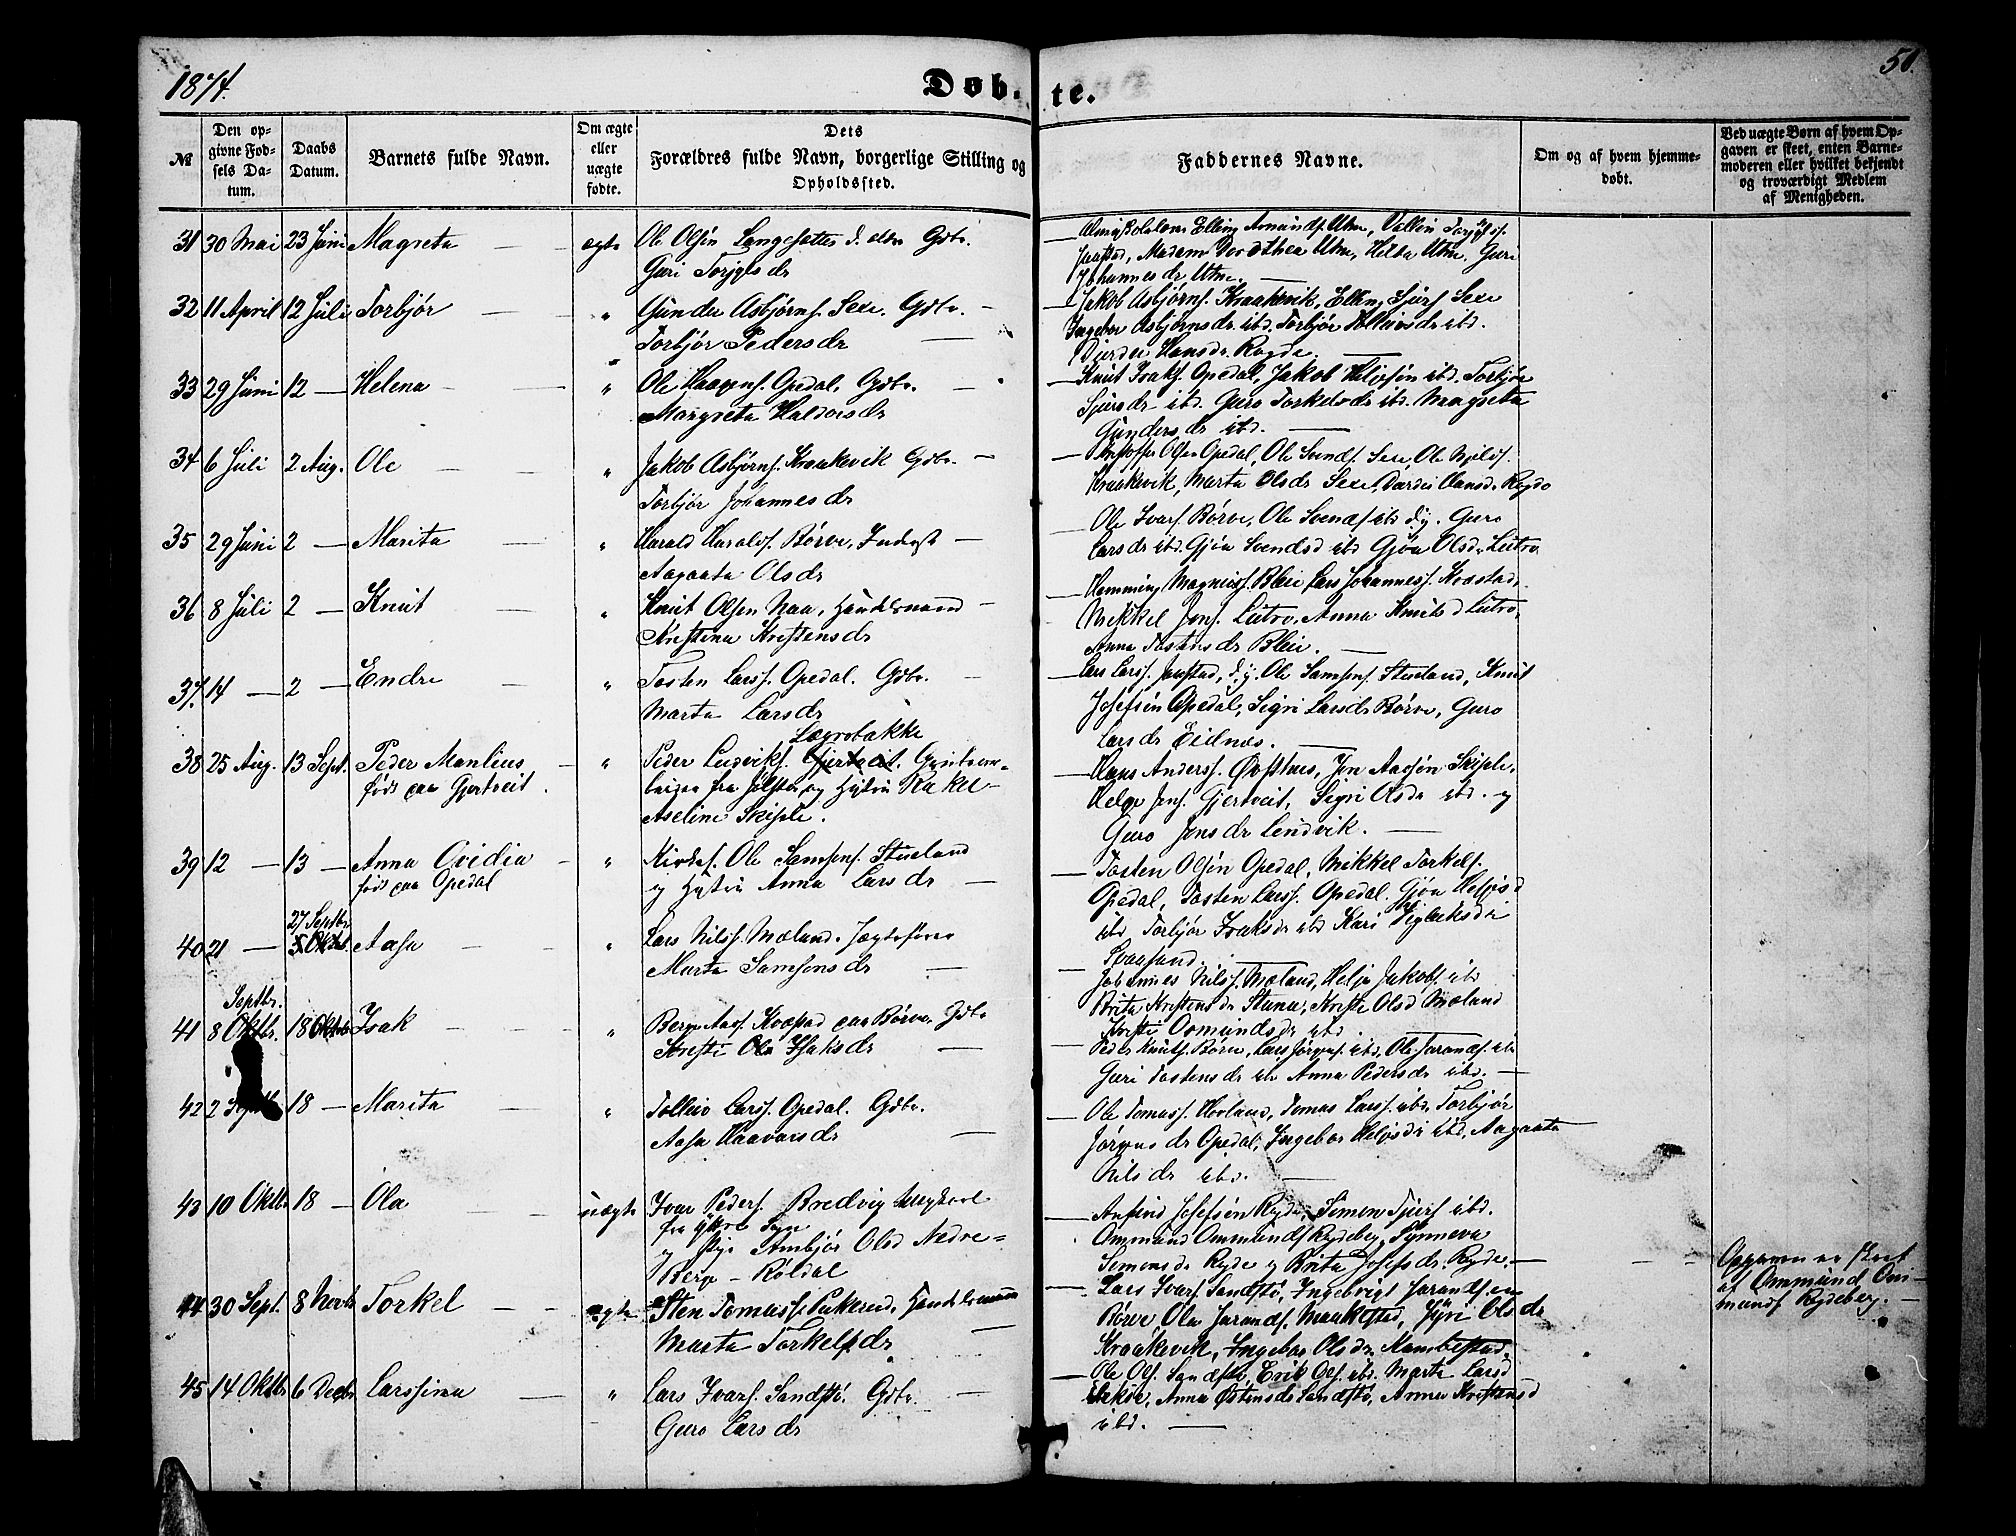 1874.
Døb-
te.
51.
№
Den op-
givne Fød-
sels Da-
tum.
Daabs
Datum.
Barnets fulde Navn.
Om ægte
eller
uægte
fødte.
Dets
Forældres fulde Navn, borgerlige Stilling og
Opholdssted.
Faddernes Navne.
Om og af hvem hjemme-
døbt.
Ved uægte Børn af hvem Op-
gaven er skeet, enten Barne-
moderen eller hvilket bekjendt
og troværdigt Medlem
af Menigheden.
31 30 Mai 23 Juni Magreta ægte Ole Olsen Langesæter d. eldr Gdbr.
Guri Torjylsdr
Elling Amundss. Utne,
Madam Dorothea Utne, Helda Utne, Guri
Johannesdr Utne.
32 11 April 12 Juli Torbjør " Gunder Asbjørns. Sexe. Gdbr.
Torbjør Pedersdr
Jakob Asbjørns. Kraakevik, Elling Sjurs. Sexe
Ingebor Asbjørnsdr ibd. Torbjør Tolleivsdr ibd.
Hansdr. Ragde.
33 29 Juni 12 — Helena " Ole Haagens. Opedal, Gdbr.
Margreta Haldorsdr
Knut Isaks. Opedal, Jakob Helgesøn ibd. Torbjør
Sjursdr ibd. Guro Torkelsdr ibd. Magreta
Gundersdr ibd.
34 6 Juli 2 Aug. Ole " Jakob Asbjørns. Kraakevik Gdbr.
Torbjør Johannesdr
Olsen Opedal, Ole Svends. Sexe, Ole Nils.
Kraakevik, Marta Olsdr Sexe, Hansd. Ragde
35 29 Juni 2 — Marita " Harald Haralds. Børve, Inderst
Aagaata Olsdr
Ole Ivars. Børve, Ole Svends. ibd d.y. Guro
Larsdr ibd. Gjøa Svendsd ibd Gjøa Olsdr. Lutro
36 8 Juli 2 — Knut " Knut Olsen Naa, Handelsmand
Kristina Kristensdr
Hemming Magnuss. Bleie Lars Johanness.
Mikkel Jons. Lutro, Anna Knutsd Lutro,
Anna Tostensdr Bleie.
37. 14 — 2 — Endre " Tosten Larss. Opedal. Gdbr.
Marta Larsdr
Lars Larss. Jaastad, d.y. Ole Samsons. Stueland, Knut
Josefsøn Opedal, Sigri Larsdr Børve, Guro
Larsdr Eidnes.
38 25 Aug. 13 Sept. Peder Manlius " Peder Ludviks.
født paa Gjertveit
fra Jølster og Hustru Rakel
Aseline Skiple.
Hans Anderss. Jon Aadsøn Skiple,
Helge Jons. Gjertveit, Sigri Olsdr ibd. og
Guro Jonsdr Lindvik.
39 12 — 13 — Anna Ovidia " Kirkes. Ole Samsons. Stueland
født paa Opedal og Hustru Anna Larsdr
Tosten Olsøn Opedal, Mikkel Torkels.
Opedal, Tosten Larss. Opedal. Gjøa Helgesd
ibd Torbjør Isaksdr ibd Kari Viglieksdr
27 Septbr.
40 21 — Aasa " Lars Nilss. Mæland. Jægtefører
Marta Samsonsdr
Johannes Nilss. Mæland, Helje Jakobs. ibd
Brita Kristensdr Stana, Kristi Olsd Mæland
Kristi Osmundsdr ibd
Septbr.
41 8 Oktbr. 18 Oktbr Isak " Berge Aass. Kvæstad paa Børve. Gdbr
Kristi Ola Isaksdr
Peder Knuts. Børve, Lars Jørgens. ibd, Ole Jarands. ibd
Guri Tostensdr ibd Anna Pedersdr ibd.
42 2 Septbr 18 — Marita " Tolleiv Larss. Opedal. Gdbr.
Aasa Haavarsdr
Ole Tomass. Hovland, Tomas Larss. ibd, Torbjør
Jørgensdr Opedal, Ingebor Helgesdr ibd, Aagaata
Nilsdr ibd.
43 10 Oktbr 18 — Ola uægte Ivar Peders. Bredvig Ungkarl
fra Ydre Sogn
og Pige Ambjør Olsd Nedre-
Berge - Røldal
Anfind Josefsøn Ryde, Simon Sjurs. ibd.
Ommund Ommunds. Rydeberg, Synneva
Simonsdr Ryde og Brita Josefsdr. Ryde.
Opgaven er skeet
af Ommund Om-
munds. Rydeberg.
44 30 Sept. 8 Novbr Torkel ægte Sten Tomass. Pukerud, Handelsmann
Marta Torkelsdr
Lars Ivars. Sandstø, Ingebrigt Jarandsen
Børve Ola Jarands. Maakestad, Syri Olsdr
Kraakevik, Ingebor Olsdr. Mannbestad.
45 14 Oktbr 6 Decbr Larssina " Lars Ivars. Sandstø. Gdbr.
Guro Larsdr
Ole Ols. Sandstø, Erik Ols. ibd. Marta Larsd
Anna Østensdr Sandstø, Anna Kristensd
ibd.